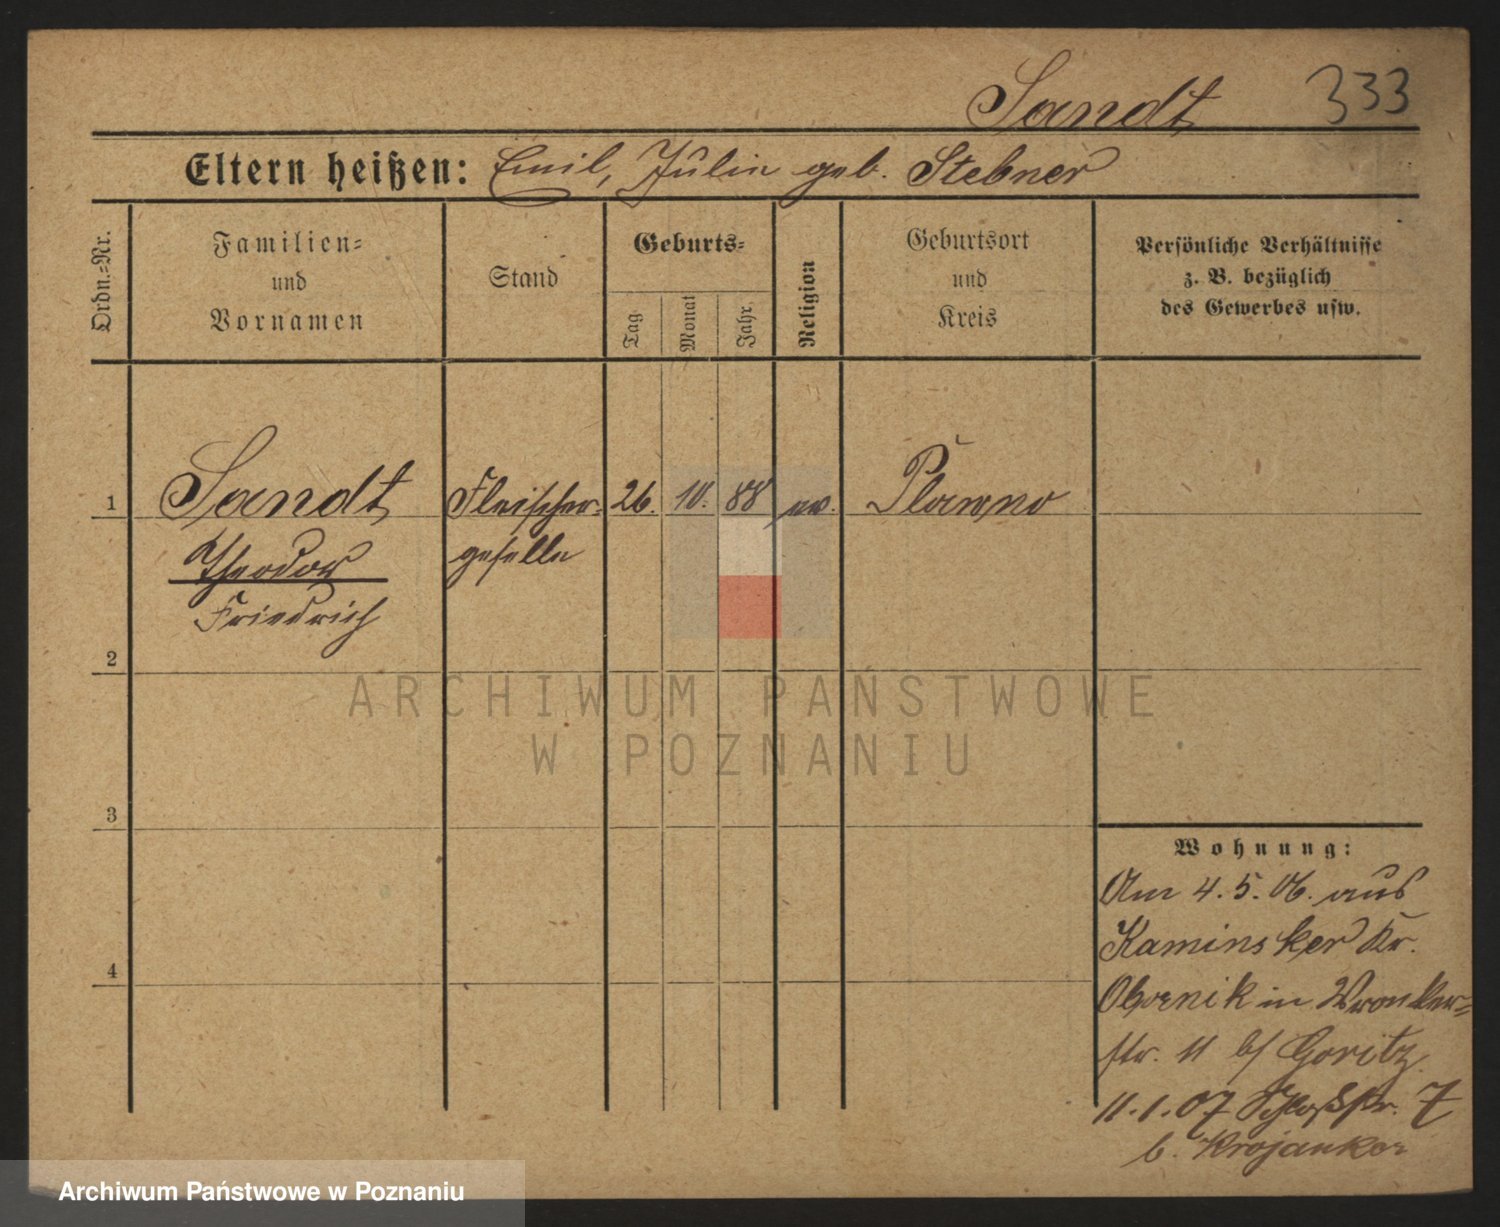 Sandt 333
Eltern heißen: Emil, Julie geb. Stebner
Ordn.-Nr.
Familien-
und
Vornamen
Stand
Geburts-
Tag
Monat
Jahr
Religion
Geburtsort
und
Kreis
Persönliche Verhältnisse
z. B. bezüglich
des Gewerbes usw.
1 Sandt Fleischer- 26. 10. 88 ev. Plawno
Theodor geselle
Friedrich
2
3
4
Wohnung:
Am 4.5.06. aus
Kaminsker Kr.
Obornik in Wronker-
str. 11 b/ Goritz.
11.1.07 Schloßstr. 7
b. Krojanker
ARCHIWUM PAŃSTWOWE
W POZNANIU
Archiwum Państwowe w Poznaniu